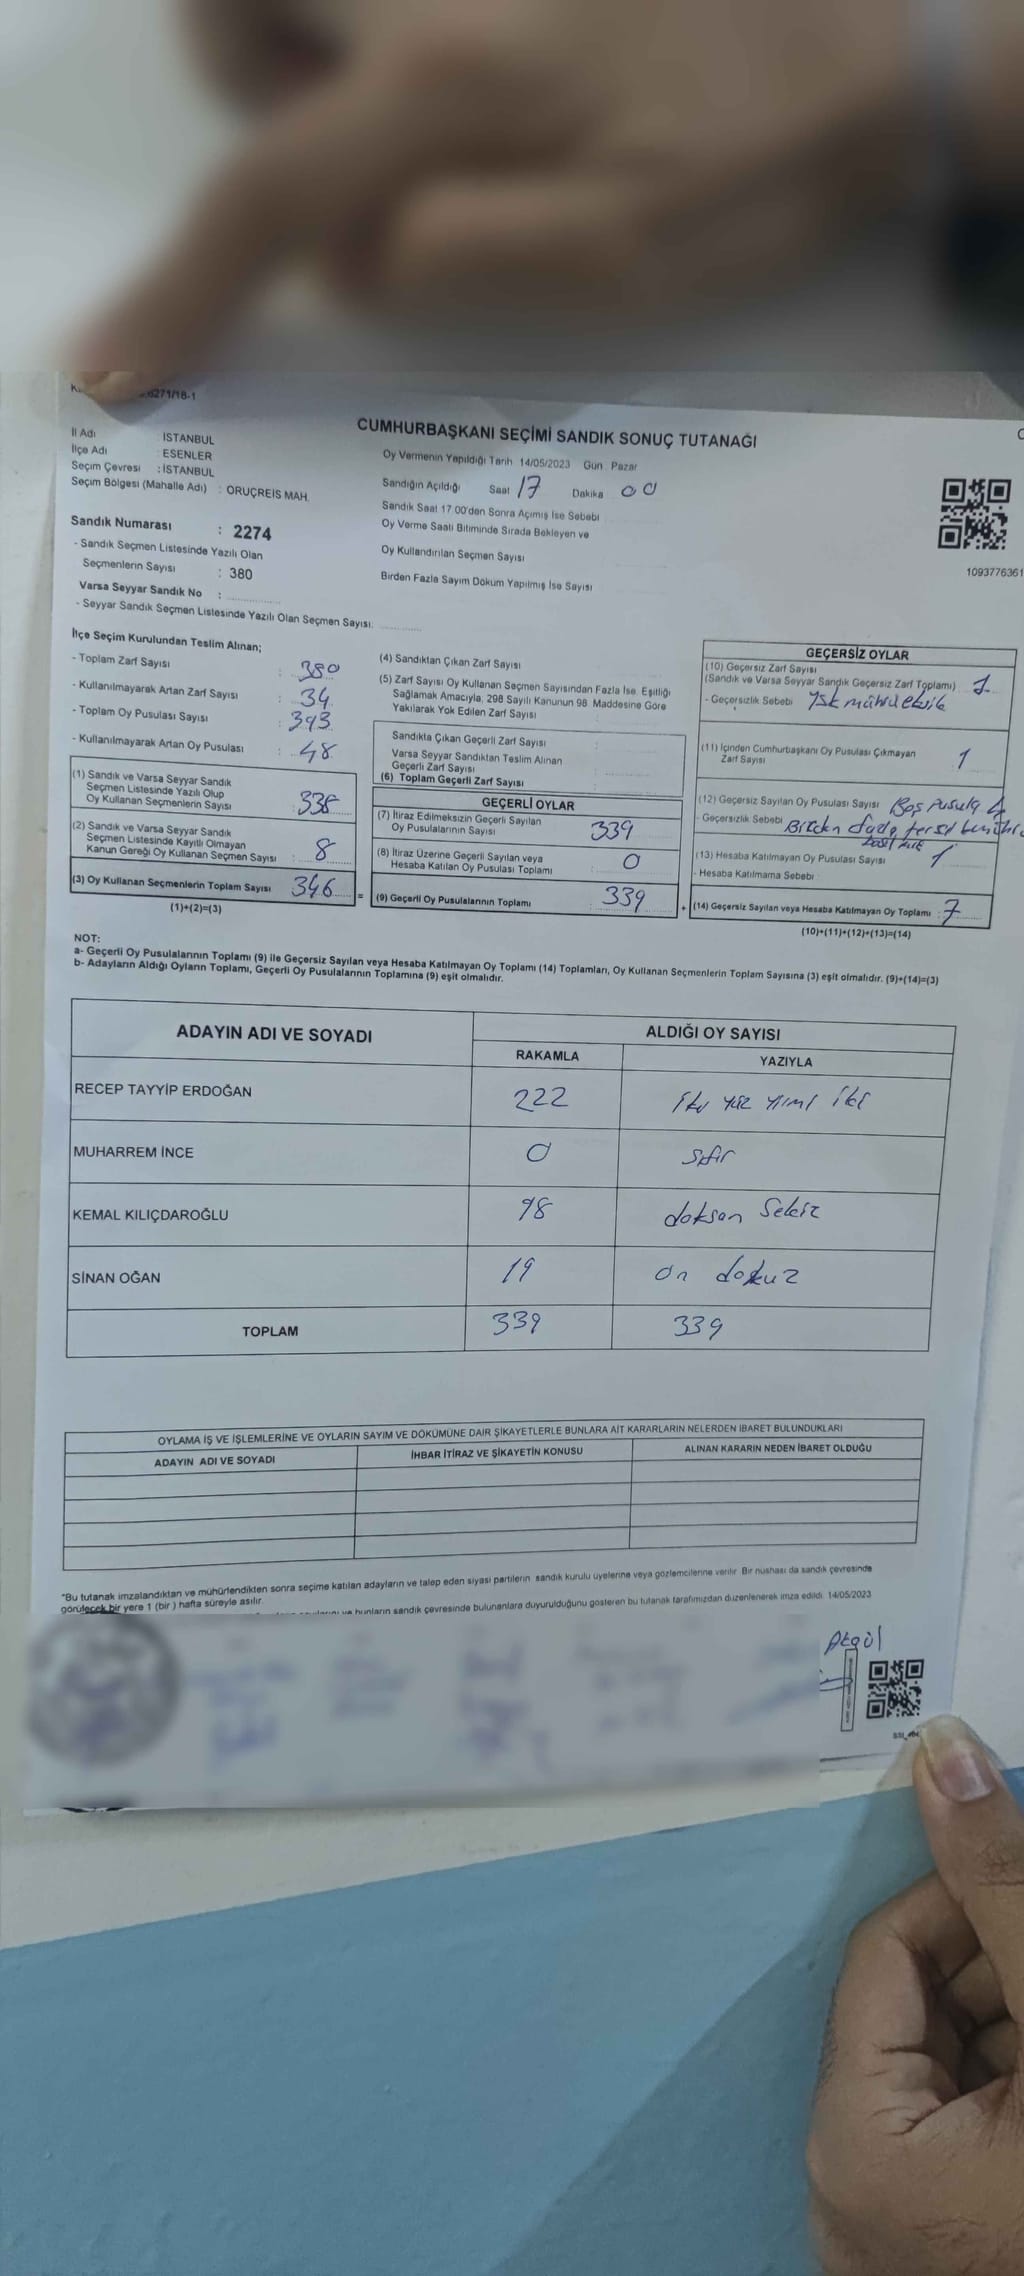 CUMHURBAŞKANI SEÇİMİ SANDIK SONUÇ TUTANAĞI
İl Adı : İSTANBUL
İlçe Adı : ESENLER
Seçim Çevresi : İSTANBUL
Seçim Bölgesi (Mahalle Adı) : ORUÇREİS MAH.
Oy Vermenin Yapıldığı Tarih 14/05/2023 Gün Pazar
Sandığın Açıldığı Saat 17 Dakika 00
Sandık Saat 17.00'den Sonra Açmış İse Sebebi
Oy Verme Saati Bitiminde Sırada Bekleyen ve
Oy Kullandırılan Seçmen Sayısı
Birden Fazla Sayım Döküm Yapılmış İse Sayısı
1093776361
Sandık Numarası : 2274
- Sandık Seçmen Listesinde Yazılı Olan
Seçmenlerin Sayısı : 380
Varsa Seyyar Sandık No :
- Seyyar Sandık Seçmen Listesinde Yazılı Olan Seçmen Sayısı:
İlçe Seçim Kurulundan Teslim Alınan;
- Toplam Zarf Sayısı : 380
- Kullanılmayarak Artan Zarf Sayısı : 34
- Toplam Oy Pusulası Sayısı : 393
- Kullanılmayarak Artan Oy Pusulası : 48
(1) Sandık ve Varsa Seyyar Sandık
Seçmen Listesinde Yazılı Olup
Oy Kullanan Seçmenlerin Sayısı : 338
(2) Sandık ve Varsa Seyyar Sandık
Seçmen Listesinde Kayıtlı Olmayan
Kanun Gereği Oy Kullanan Seçmen Sayısı : 8
(3) Oy Kullanan Seçmenlerin Toplam Sayısı 346
(1)+(2)=(3)
(4) Sandıktan Çıkan Zarf Sayısı
(5) Zarf Sayısı Oy Kullanan Seçmen Sayısından Fazla İse, Eşitliği
Sağlamak Amacıyla, 298 Sayılı Kanunun 98. Maddesine Göre
Yakılarak Yok Edilen Zarf Sayısı :
Sandıkta Çıkan Geçerli Zarf Sayısı :
Varsa Seyyar Sandıktan Teslim Alınan
Geçerli Zarf Sayısı :
(6) Toplam Geçerli Zarf Sayısı
GEÇERLİ OYLAR
(7) İtiraz Edilmeksizin Geçerli Sayılan
Oy Pusulalarının Sayısı : 339
(8) İtiraz Üzerine Geçerli Sayılan veya
Hesaba Katılan Oy Pusulası Toplamı : 0
= (9) Geçerli Oy Pusulalarının Toplamı : 339
GEÇERSİZ OYLAR
(10) Geçersiz Zarf Sayısı
(Sandık ve Varsa Seyyar Sandık Geçersiz Zarf Toplamı) 1
- Geçersizlik Sebebi Ysk mührü eksik
(11) İçinden Cumhurbaşkanı Oy Pusulası Çıkmayan
Zarf Sayısı 1
(12) Geçersiz Sayılan Oy Pusulası Sayısı Boş pusula 4
- Geçersizlik Sebebi Birden fazla
(13) Hesaba Katılmayan Oy Pusulası Sayısı 1
- Hesaba Katılmama Sebebi
+ (14) Geçersiz Sayılan veya Hesaba Katılmayan Oy Toplamı : 7
(10)+(11)+(12)+(13)=(14)
NOT:
a- Geçerli Oy Pusulalarının Toplamı (9) ile Geçersiz Sayılan veya Hesaba Katılmayan Oy Toplamı (14) Toplamları, Oy Kullanan Seçmenlerin Toplam Sayısına (3) eşit olmalıdır. (9)+(14)=(3)
b- Adayların Aldığı Oyların Toplamı, Geçerli Oy Pusulalarının Toplamına (9) eşit olmalıdır.
ADAYIN ADI VE SOYADI ALDIĞI OY SAYISI
RAKAMLA YAZIYLA
RECEP TAYYİP ERDOĞAN 222 iki yüz yirmi iki
MUHARREM İNCE 0 sıfır
KEMAL KILIÇDAROĞLU 98 doksan sekiz
SİNAN OĞAN 19 on dokuz
TOPLAM 339 339
OYLAMA İŞ VE İŞLEMLERİNE VE OYLARIN SAYIM VE DÖKÜMÜNE DAİR ŞİKAYETLERLE BUNLARA AİT KARARLARIN NELERDEN İBARET BULUNDUKLARI
ADAYIN ADI VE SOYADI İHBAR İTİRAZ VE ŞİKAYETİN KONUSU ALINAN KARARIN NEDEN İBARET OLDUĞU
*Bu tutanak imzalandıktan ve mühürlendikten sonra seçime katılan adayların ve talep eden siyasi partilerin sandık kurulu üyelerine veya gözlemcilerine verilir. Bir nüshası da sandık çevresinde
görülecek bir yere 1 (bir) hafta süreyle asılır.
ve bunların sandık çevresinde bulunanlara duyurulduğunu gösteren bu tutanak tarafımızdan düzenlenerek imza edildi. 14/05/2023